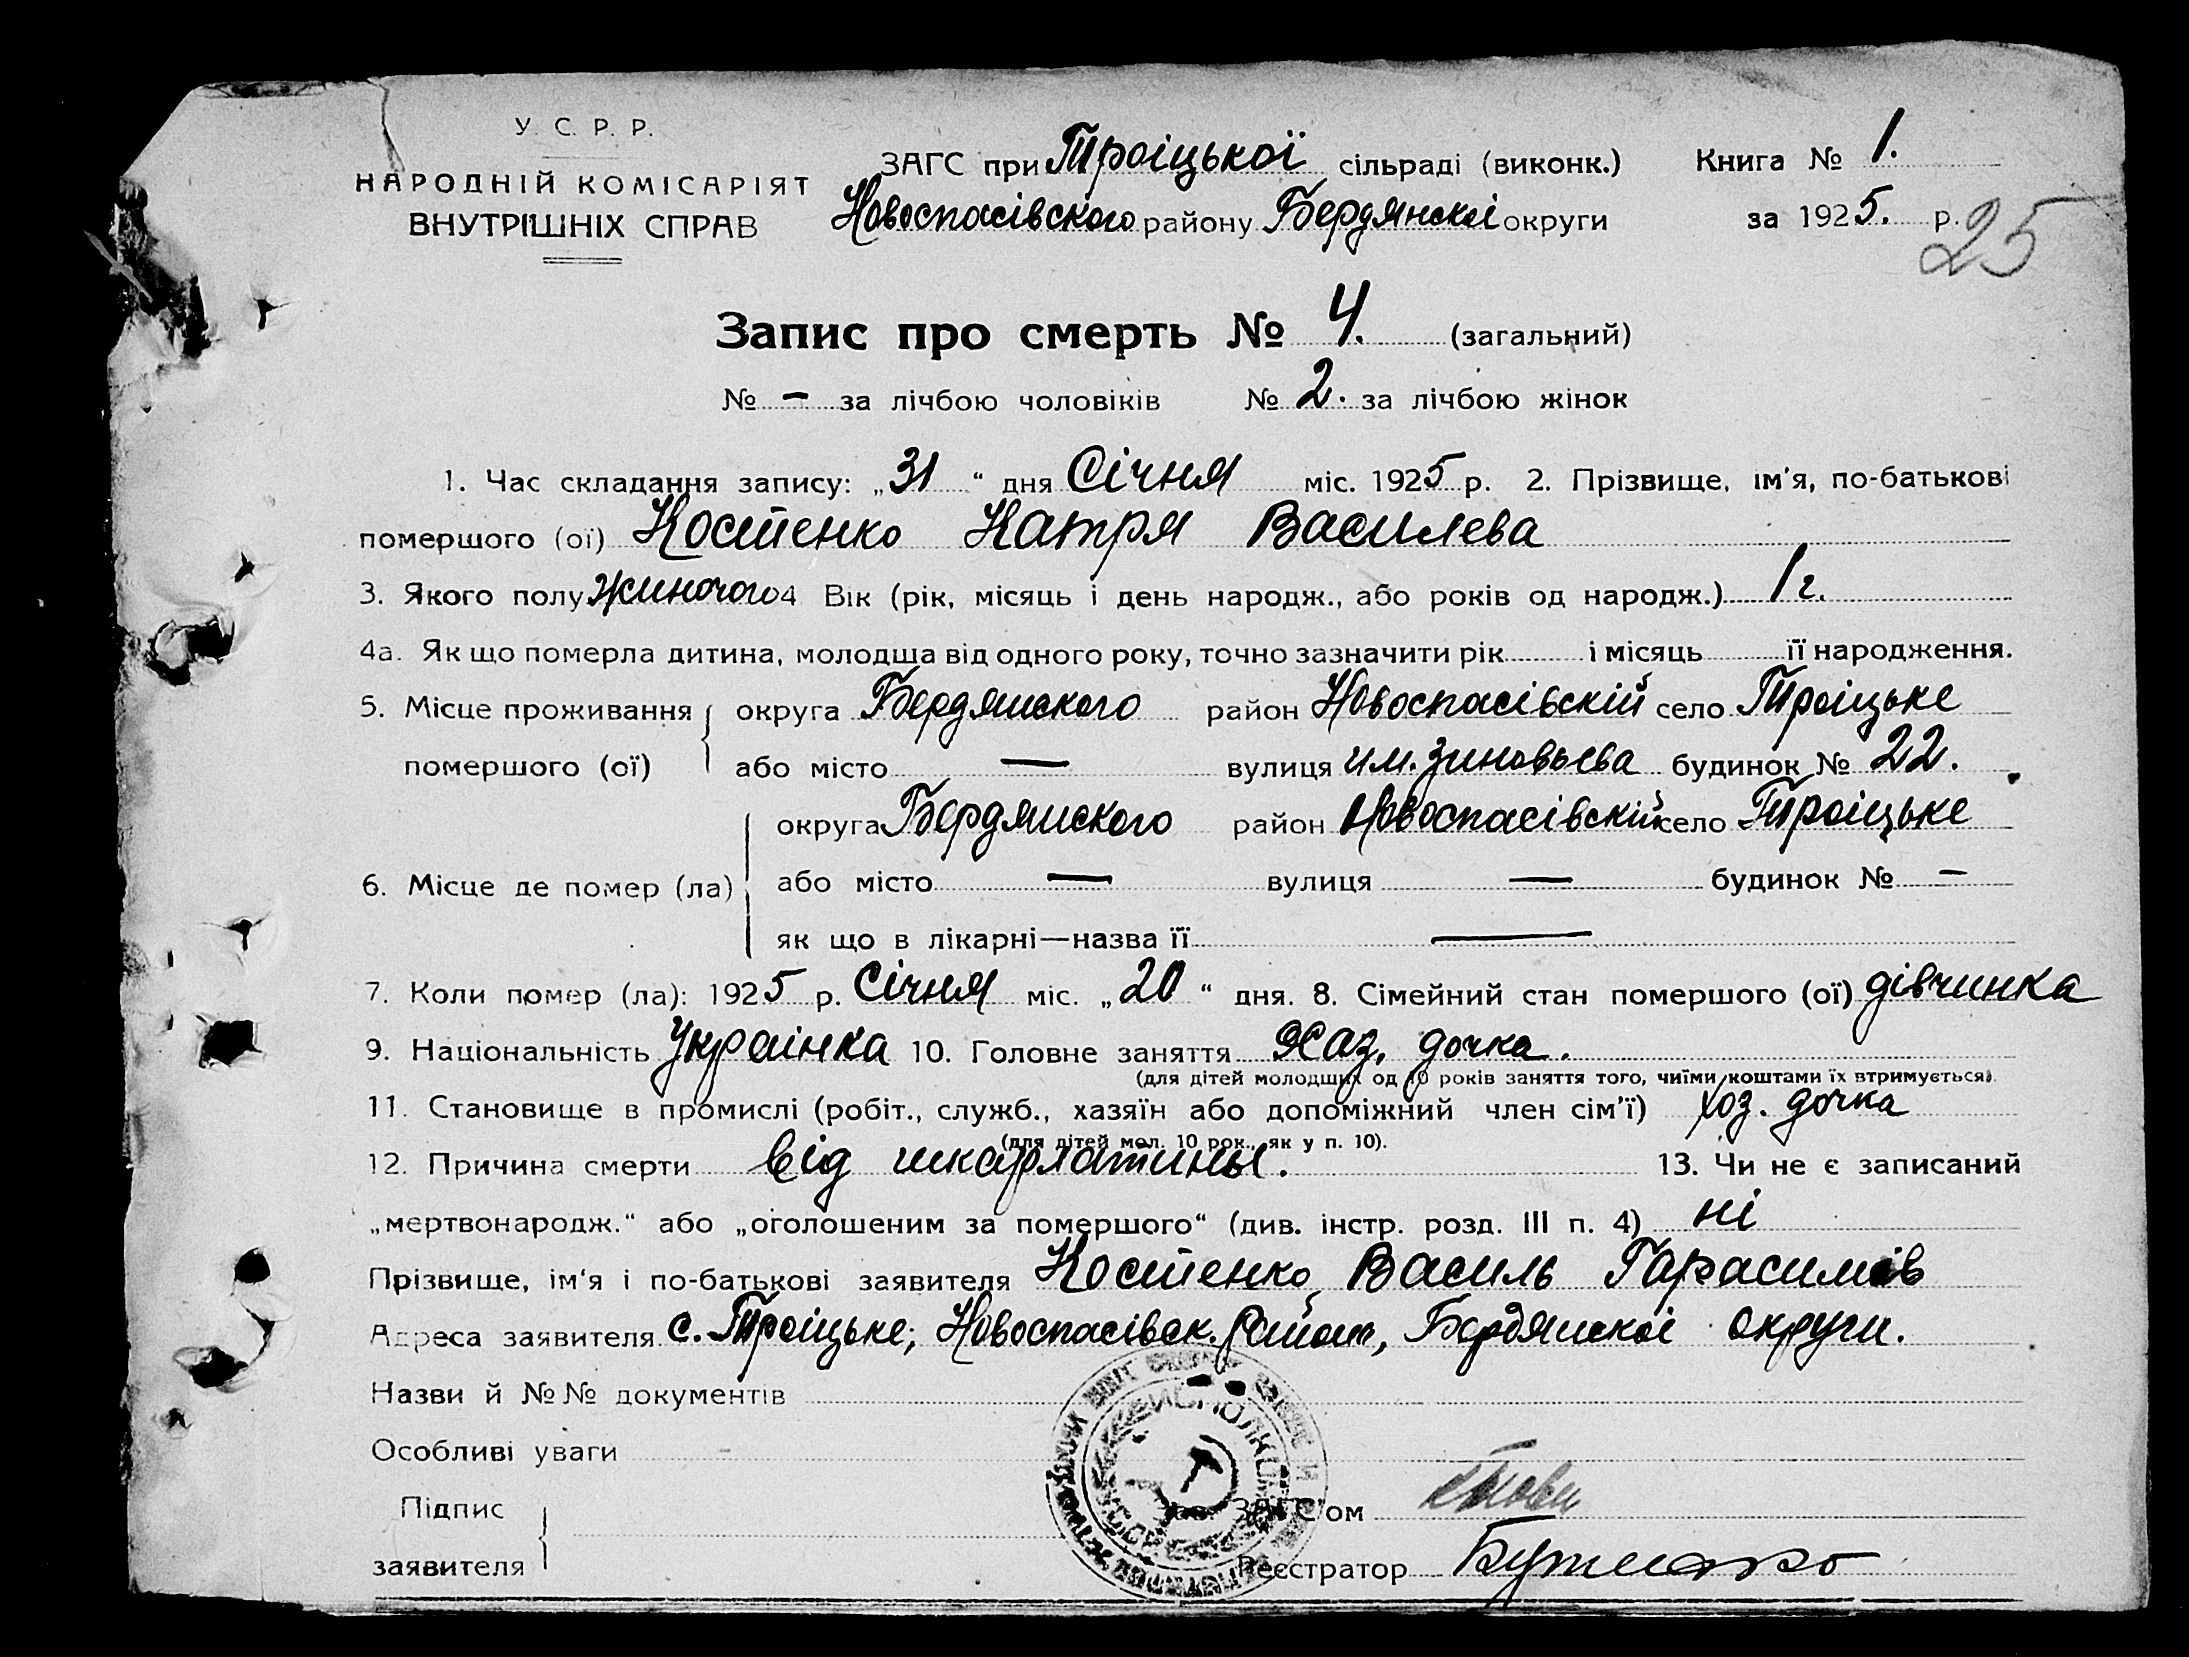 У. С. Р. Р.
НАРОДНІЙ КОМІСАРІЯТ
ВНУТРІШНІХ СПРАВ
ЗАГС при Троіцької сільраді (виконк.) Книга № 1.
Новоспасівского району Бердянскоі округи за 1925. р.
25
Запис про смерть № 4. (загальний)
№ – за лічбою чоловіків № 2. за лічбою жінок
1. Час складання запису: „31“ дня Січня міс. 1925 р. 2. Прізвище, ім'я, по-батькові
помершого (ої) Костенко Катря Василева
3. Якого полу жиночого 4 Вік (рік, місяць і день народж., або років од народж.) 1 г.
4а. Як що померла дитина, молодша від одного року, точно зазначити рік і місяць її народження.
5. Місце проживання округа Бердянского район Новоспасівскій село Троіцьке
помершого (ої) або місто — вулиця им. Зиновьева будинок № 22.
округа Бердянского район Новоспасівскій село Троіцьке
6. Місце де помер (ла) або місто — вулиця — будинок № –
як що в лікарні—назва її —
7. Коли помер (ла): 1925 р. Січня міс. „20“ дня. 8. Сімейний стан помершого (ої) дівчинка
9. Національність Украінка 10. Головне заняття Хаз. дочка.
(для дітей молодших од 10 років заняття того, чиїми коштами їх втримується).
11. Становище в промислі (робіт., служб., хазяїн або допоміжний член сім'ї) хоз. дочка
(для дітей мол. 10 рок., як у п. 10).
12. Причина смерти від шкарлатины. 13. Чи не є записаний
„мертвонародж.“ або „оголошеним за помершого“ (див. інстр. розд. III п. 4) ні
Прізвище, ім'я і по-батькові заявителя Костенко Василь Гарасимів
Адреса заявителя с. Троіцьке; Новоспасівск. район, Бердянскоі округи.
Назви й №№ документів
Особливі уваги
Підпис ЗАГС'ом
заявителя Реєстратор